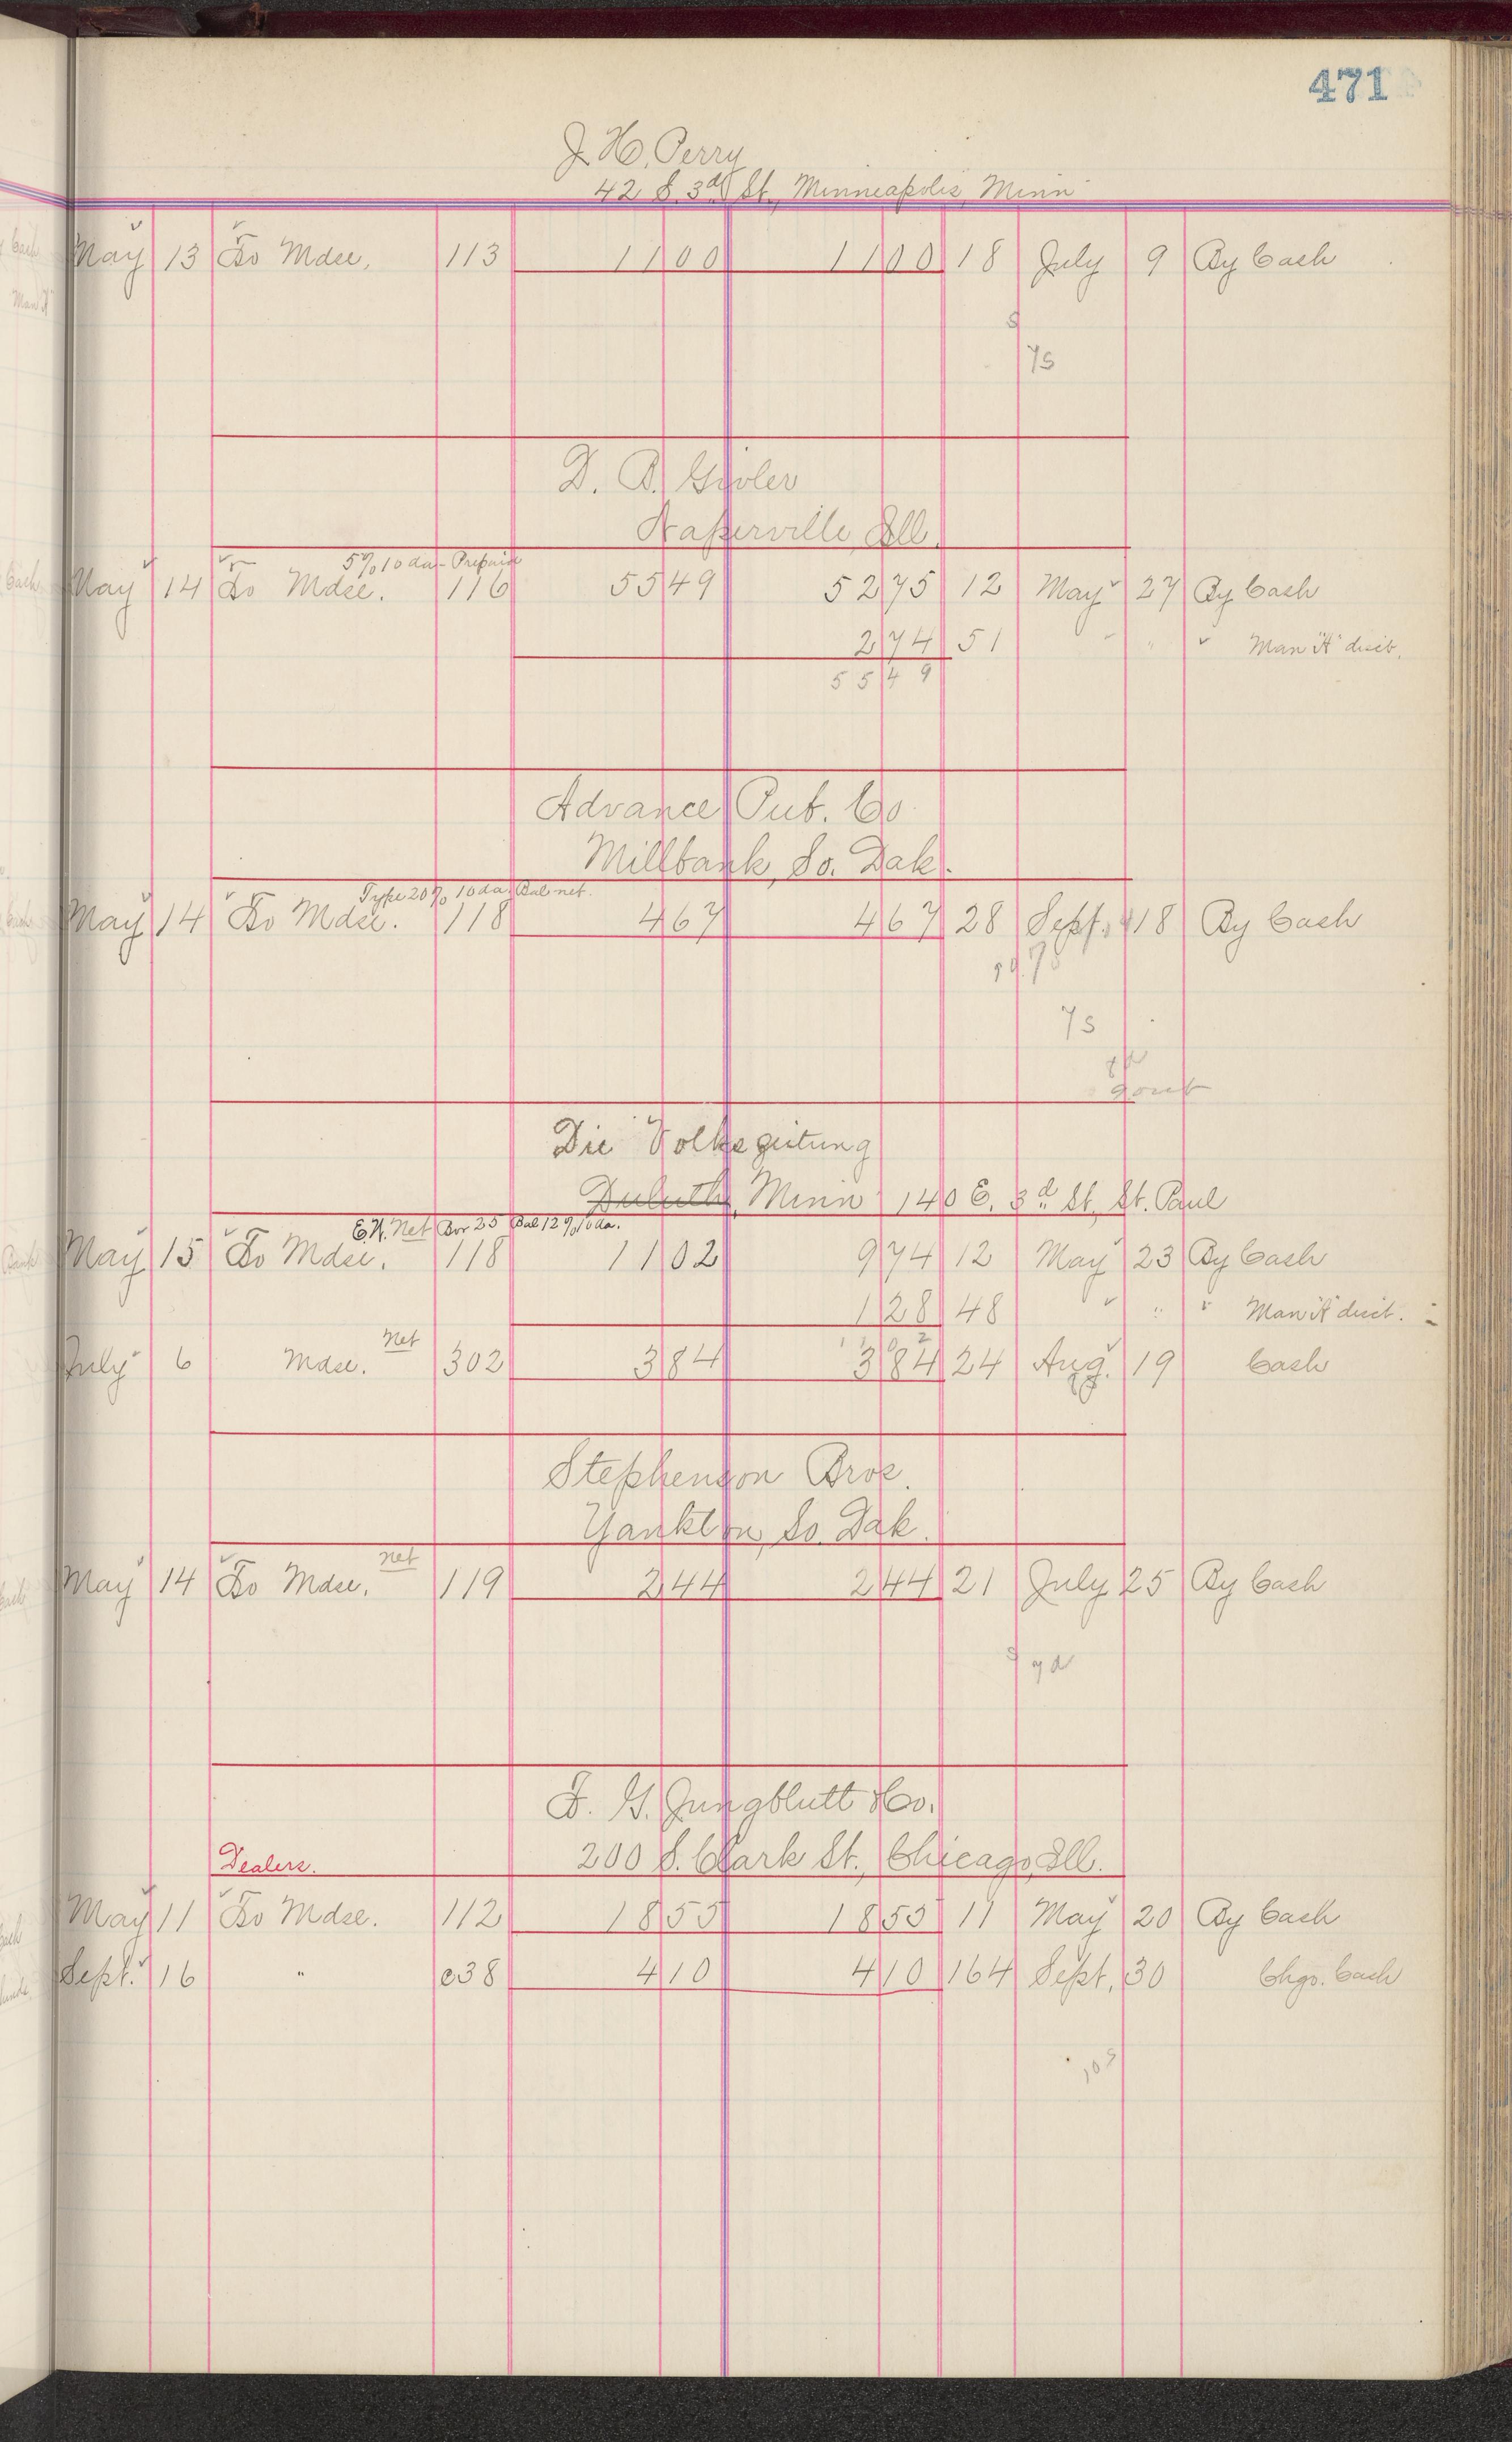 471
J. H. Perry
42 S. 3d St., Minneapolis, Minn
May 13 To Mdse. 113 11 00 11 00 18 July 9 By Cash
75
Naperville Ill.
5% 10 da - Prepaid
May 14 To Mdse. 116 55 49 52 75 12 May 27 By Cash
2 74 51 " " Man'f' disct.
55 49
Advance Pub. Co.
Millbank, So. Dak.
Type 20% 10 da. Bal net.
May 14 To Mdse. 118 4 67 4 67 28 Sept. 18 By Cash
75
Die Volkszeitung
Duluth, Minn 140 E. 3d St. St. Paul
Net 25 Bal 12% 10 da.
May 15 To Mdse. 118 11 02 9 74 12 May 23 By Cash
1 28 48 " " Man'f' disct.
11 02
July 6 Mdse. Net 302 3 84 3 84 24 Aug. 19 Cash
Stephenson Bros.
Yankton, So. Dak.
net
May 14 To Mdse. 119 2 44 2 44 21 July 25 By Cash
F. G. Jungblutt & Co.
Dealers. 200 S. Clark St., Chicago, Ill.
May 11 To Mdse. 112 18 55 18 55 11 May 20 By Cash
Sept. 16 " 4 10 4 10 164 Sept. 30 Chgo. Cash